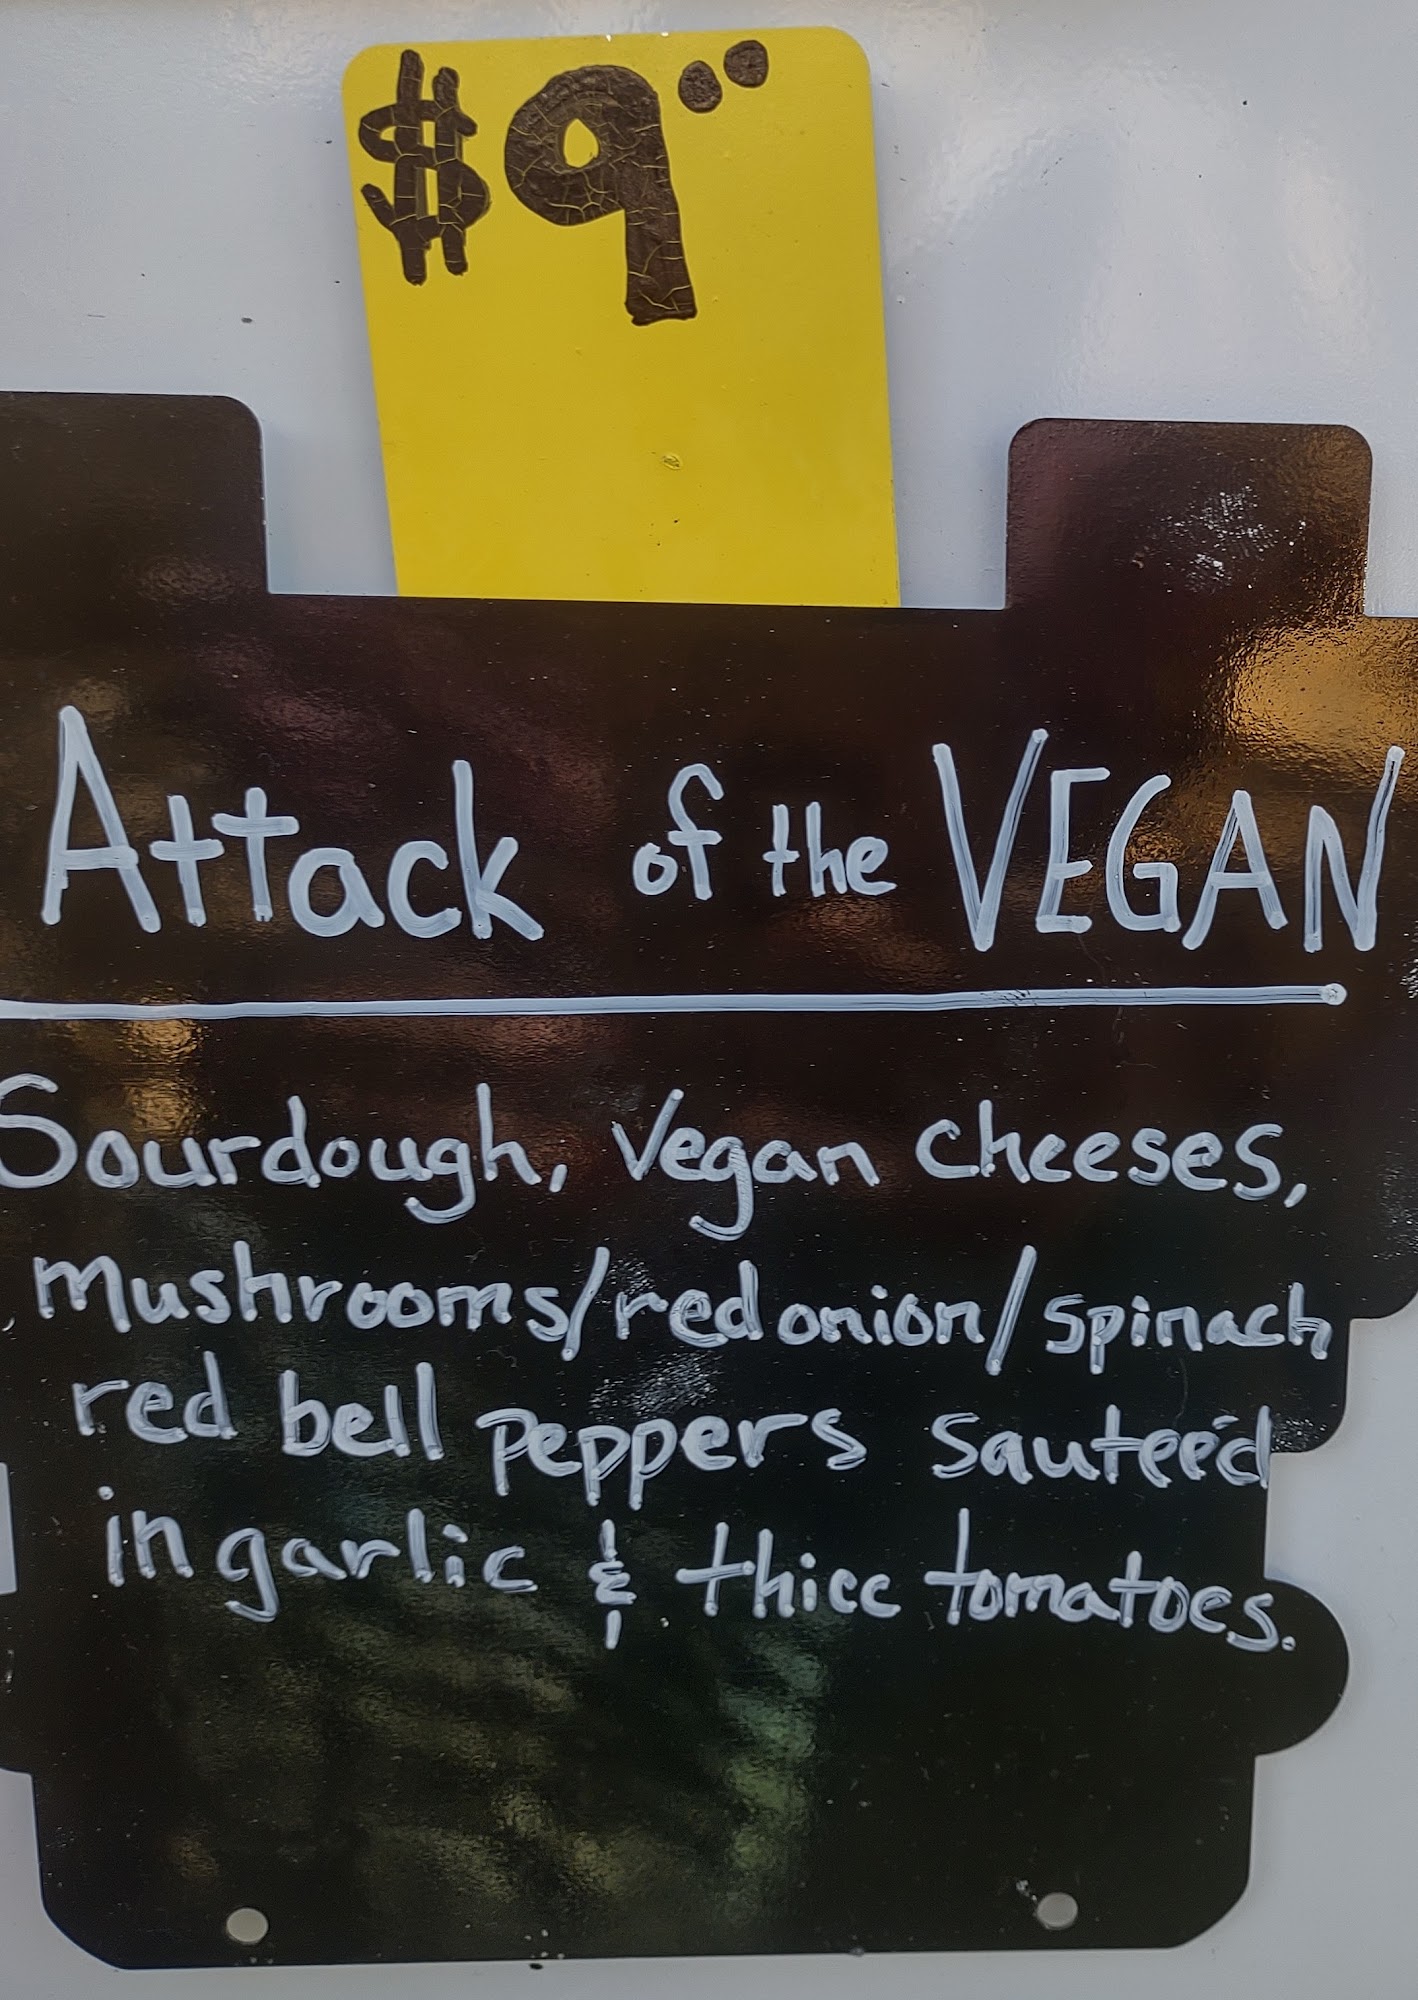 $9..
Attack of the VEGAN
Sourdough, Vegan cheeses,
mushrooms/red onion/spinach
red bell peppers sauteéd
in garlic & thicc tomatoes.